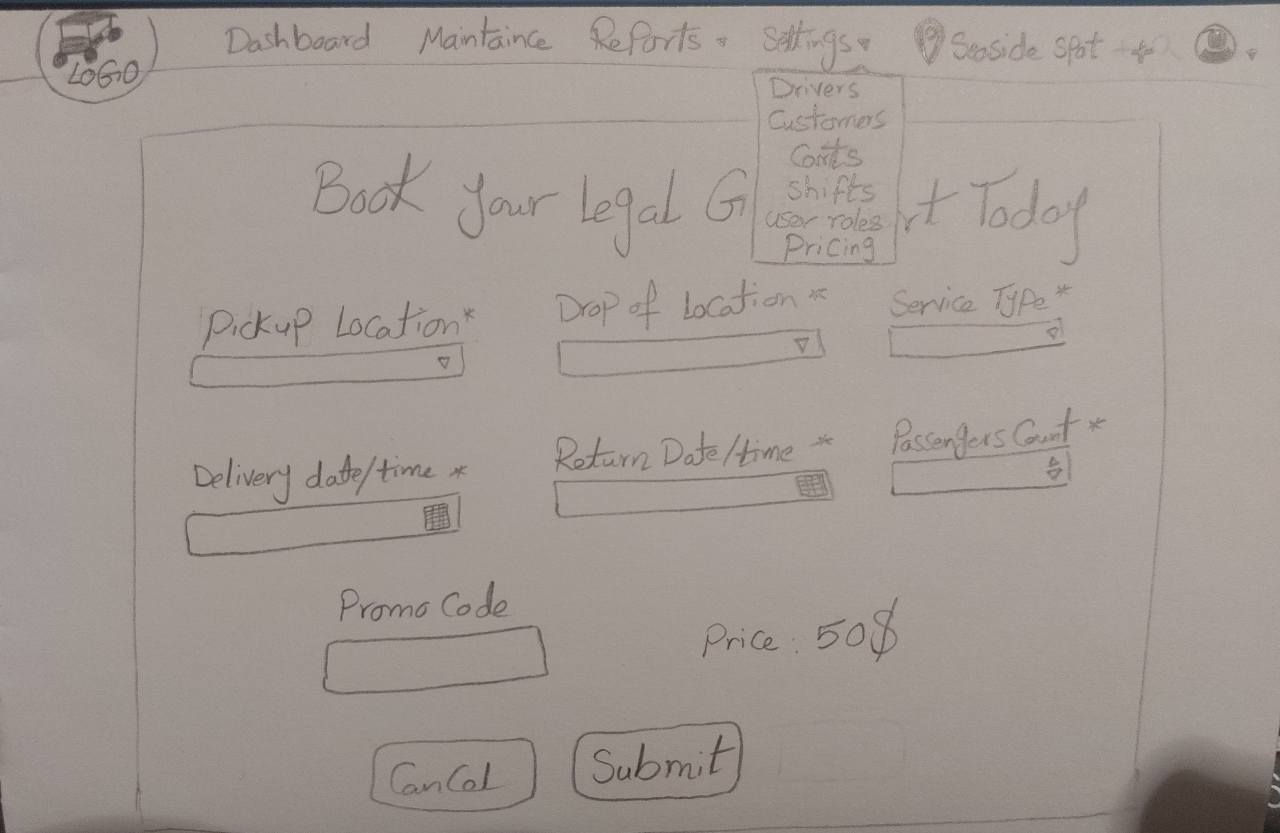 LOGO Dashboard Maintaince Reports Settings Seaside Spot
Drivers
Customers
Carts
Shifts
user roles
Pricing
Book Your Legal G rt Today
Pickup Location* Drop of Location* Service Type*
Delivery date/time* Return Date/time* Passengers Count*
Promo Code
Price: 50$
Cancel Submit